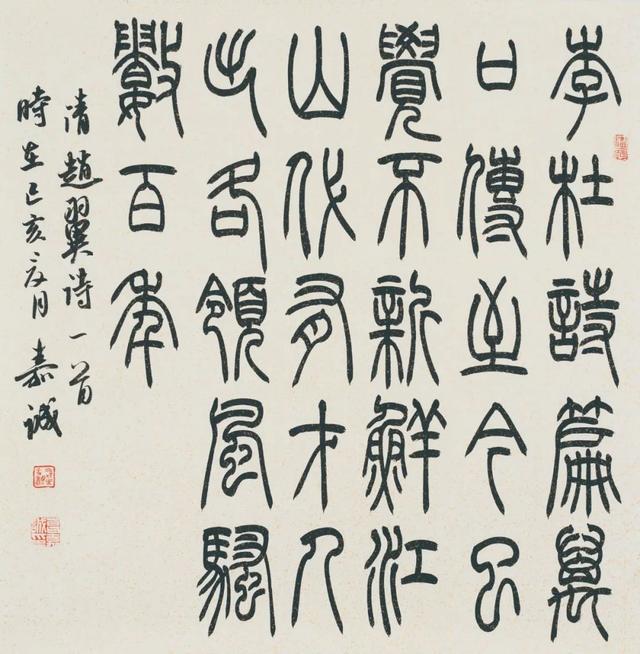 李杜詩篇萬
口傳至今已
覺不新鮮江
山代有才人
出各領風騷
數百年
清趙翼诗一首
時在己亥夏月 嘉诚